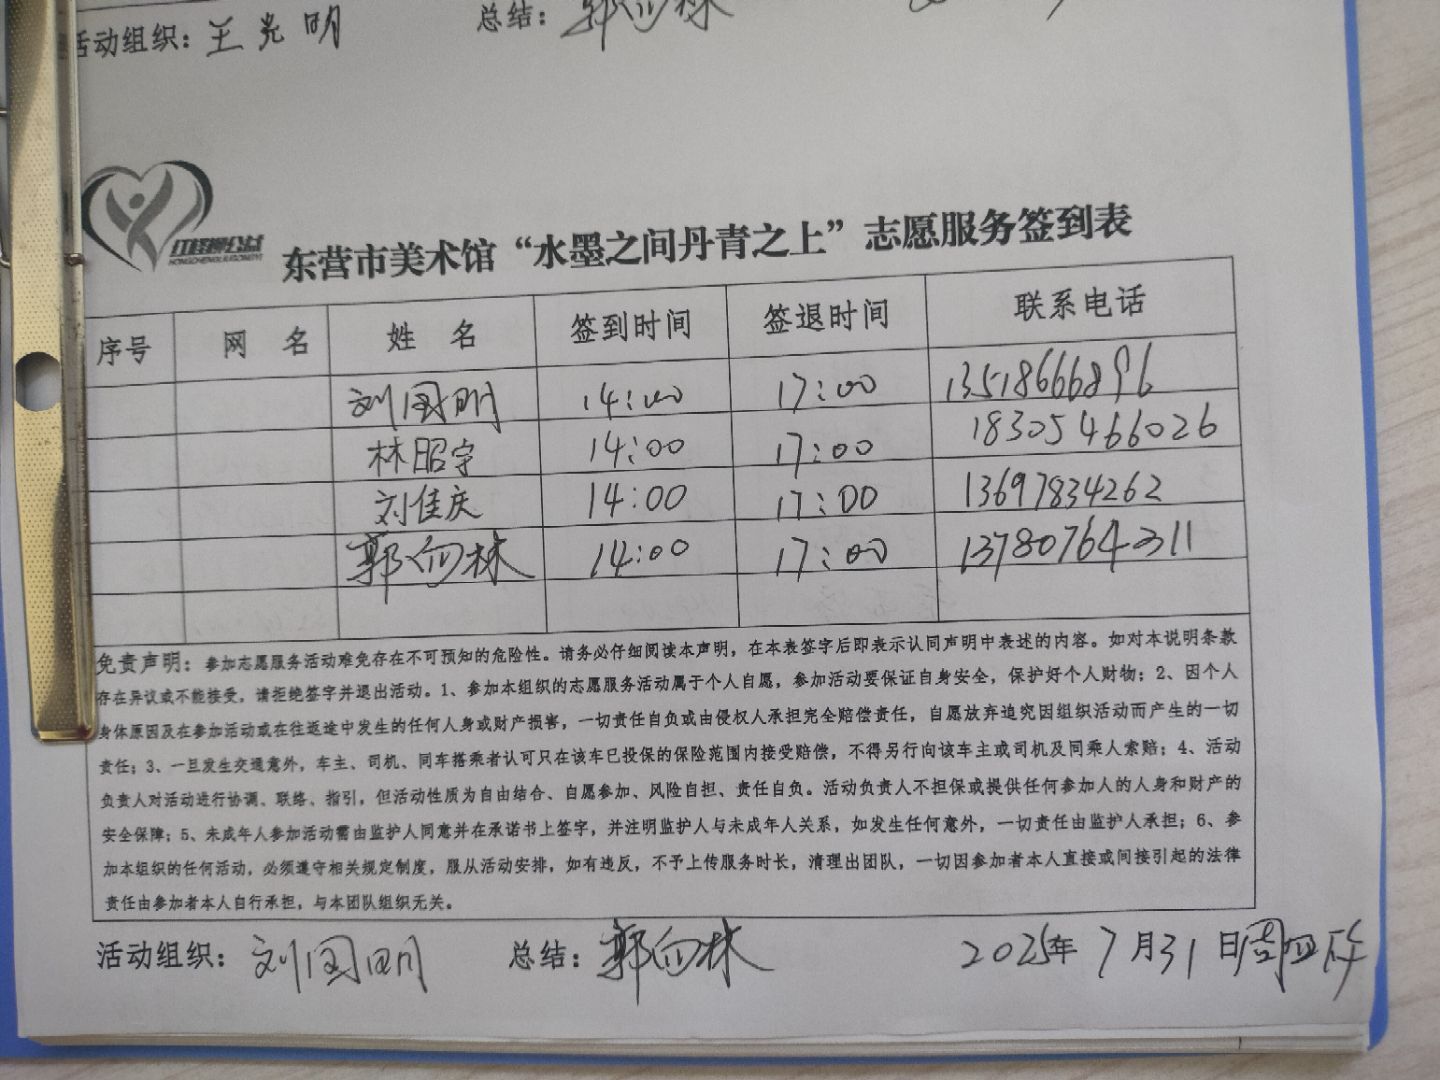 活动组织：王光明 总结：郭向林
HONGCHENGLILIGONGYI
东营市美术馆“水墨之间丹青之上”志愿服务签到表
序号 网 名 姓 名 签到时间 签退时间 联系电话
刘国明 14:00 17:00 13518666896
林昭宇 14:00 17:00 18305466026
刘佳庆 14:00 17:00 13697834262
郭向林 14:00 17:00 13780764311
免责声明：参加志愿服务活动难免存在不可预知的危险性。请务必仔细阅读本声明，在本表签字后即表示认同声明中表述的内容。如对本说明条款
存在异议或不能接受，请拒绝签字并退出活动。1、参加本组织的志愿服务活动属于个人自愿，参加活动要保证自身安全，保护好个人财物；2、因个人
身体原因及在参加活动或在往返途中发生的任何人身或财产损害，一切责任自负或由侵权人承担完全赔偿责任，自愿放弃追究因组织活动而产生的一切
责任；3、一旦发生交通意外，车主、司机、同车搭乘者认可只在该车已投保的保险范围内接受赔偿，不得另行向该车主或司机及同乘人索赔；4、活动
负责人对活动进行协调、联络、指引，但活动性质为自由结合、自愿参加、风险自担、责任自负。活动负责人不担保或提供任何参加人的人身和财产的
安全保障；5、未成年人参加活动需由监护人同意并在承诺书上签字，并注明监护人与未成年人关系，如发生任何意外，一切责任由监护人承担；6、参
加本组织的任何活动，必须遵守相关规定制度，服从活动安排，如有违反，不予上传服务时长，清理出团队，一切因参加者本人直接或间接引起的法律
责任由参加者本人自行承担，与本团队组织无关。
活动组织：刘国明 总结：郭向林 2025年7月31日周四下午